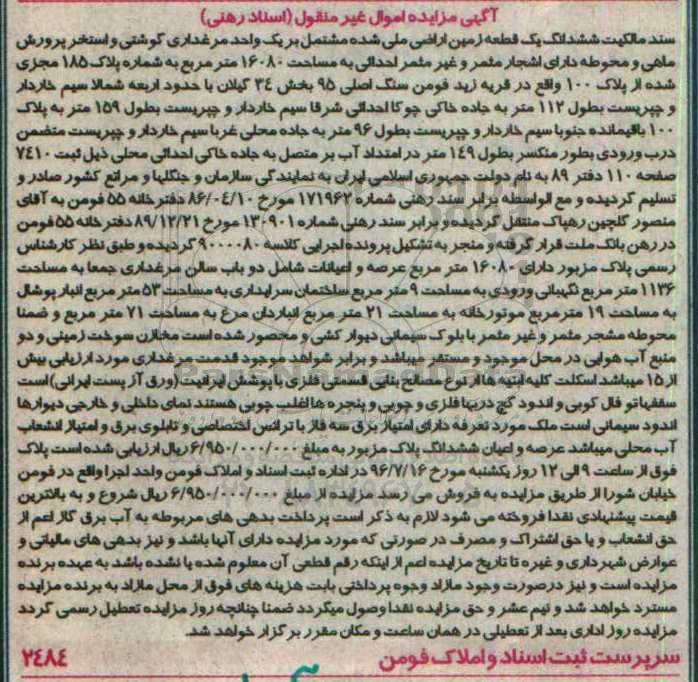 آگهی مزایده اموال غیر منقول (اسناد رهنی)
سند مالکیت ششدانگ یک قطعه زمین اراضی ملی شده مشتمل بر یک واحد مرغداری گوشتی و استخر پرورش
ماهی و محوطه دارای اشجار مثمر و غیر مثمر احداثی به مساحت ۱۶۰۸۰ متر مربع به شماره پلاک ۱۸۵ مجزی
شده از پلاک ۱۰۰ واقع در قریه زید فومن سنگ اصلی ۹۵ بخش ۲۴ گیلان با حدود اربعه شمالا سیم خاردار
و چپریست بطول ۱۱۲ متر به جاده خاکی چوکا احداثی شرقا سیم خاردار و چپریست بطول ۱۵۹ متر به پلاک
۱۰۰ باقیمانده جنوبا سیم خاردار و چپریست بطول ۹۶ متر به جاده محلی غربا سیم خاردار و چپریست متضمن
درب ورودی بطور منکسر بطول ۱۴۹ متر در امتداد آب بر متصل به جاده خاکی احداثی محلی ذیل ثبت ۷۴۱۰
صفحه ۱۱۰ دفتر ۸۹ به نام دولت جمهوری اسلامی ایران به نمایندگی سازمان و جنگلها و مراتع کشور صادر و
تسلیم گردیده و مع الواسطه برابر سند رهنی شماره ۱۷۱۹۶۲ مورخ ۸۶/۰۴/۱۰ دفترخانه ۵۵ فومن به آقای
منصور گلچین رهپاک منتقل گردیده و برابر سند رهنی شماره ۱۳۰۹۰۱ مورخ ۸۹/۱۲/۲۱ دفترخانه ۵۵ فومن
در رهن بانک ملت قرار گرفته و منجر به تشکیل پرونده اجرایی کلاسه ۹۰۰۰۰۸۰ گردیده و طبق نظر کارشناس
رسمی پلاک مزبور دارای ۱۶۰۸۰ متر مربع عرصه و اعیانات شامل دو باب سالن مرغداری جمعا به مساحت
۱۱۳۶ متر مربع نگهبانی ورودی به مساحت ۹ متر مربع ساختمان سرایداری به مساحت ۵۳ متر مربع انبار پوشال
به مساحت ۱۹ متر مربع موتورخانه به مساحت ۲۱ متر مربع انباردان مرغ به مساحت ۷۱ متر مربع و ضمنا
محوطه مشجر مثمر و غیر مثمر با بلوک سیمانی دیوار کشی و محصور شده است مخازن سوخت زمینی و دو
منبع آب هوایی در محل موجود و مستقر میباشد و برابر شواهد موجود قدمت مرغداری مورد ارزیابی بیش
از ۱۵ میباشد اسکلت کلیه ابنیه ها از نوع مصالح بنایی قسمتی فلزی با پوشش ایرانیت (ورق آزبست ایرانی) است
سقفها تو فال کوبی و اندود گچ دربها فلزی و چوبی و پنجره ها اغلب چوبی هستند نمای داخلی و خارجی دیوارها
اندود سیمانی است ملک مورد تعرفه دارای امتیاز برق سه فاز با ترانس اختصاصی و تابلوی برق و امتیاز انشعاب
آب محلی میباشد عرصه و اعیان ششدانگ پلاک مزبور به مبلغ ۶/۹۵۰/۰۰۰/۰۰۰ ریال ارزیابی شده است پلاک
فوق از ساعت ۹ الی ۱۲ روز یکشنبه مورخ ۹۶/۷/۱۶ در اداره ثبت اسناد و املاک فومن واحد اجرا واقع در فومن
خیابان شورا از طریق مزایده به فروش می رسد مزایده از مبلغ ۶/۹۵۰/۰۰۰/۰۰۰ ریال شروع و به بالاترین
قیمت پیشنهادی نقدا فروخته می شود لازم به ذکر است پرداخت بدهی های مربوطه به آب برق گاز اعم از
حق انشعاب و یا حق اشتراک و مصرف در صورتی که مورد مزایده دارای آنها باشد و نیز بدهی های مالیاتی و
عوارض شهرداری و غیره تا تاریخ مزایده اعم از اینکه رقم قطعی آن معلوم شده یا نشده باشد به عهده برنده
مزایده است و نیز در صورت وجود مازاد وجوه پرداختی بابت هزینه های فوق از محل مازاد به برنده مزایده
مسترد خواهد شد و نیم عشر و حق مزایده نقدا وصول میگردد ضمنا چنانچه روز مزایده تعطیل رسمی گردد
مزایده روز اداری بعد از تعطیلی در همان ساعت و مکان مقرر برگزار خواهد شد.
سرپرست ثبت اسناد و املاک فومن ۲۴۸۴